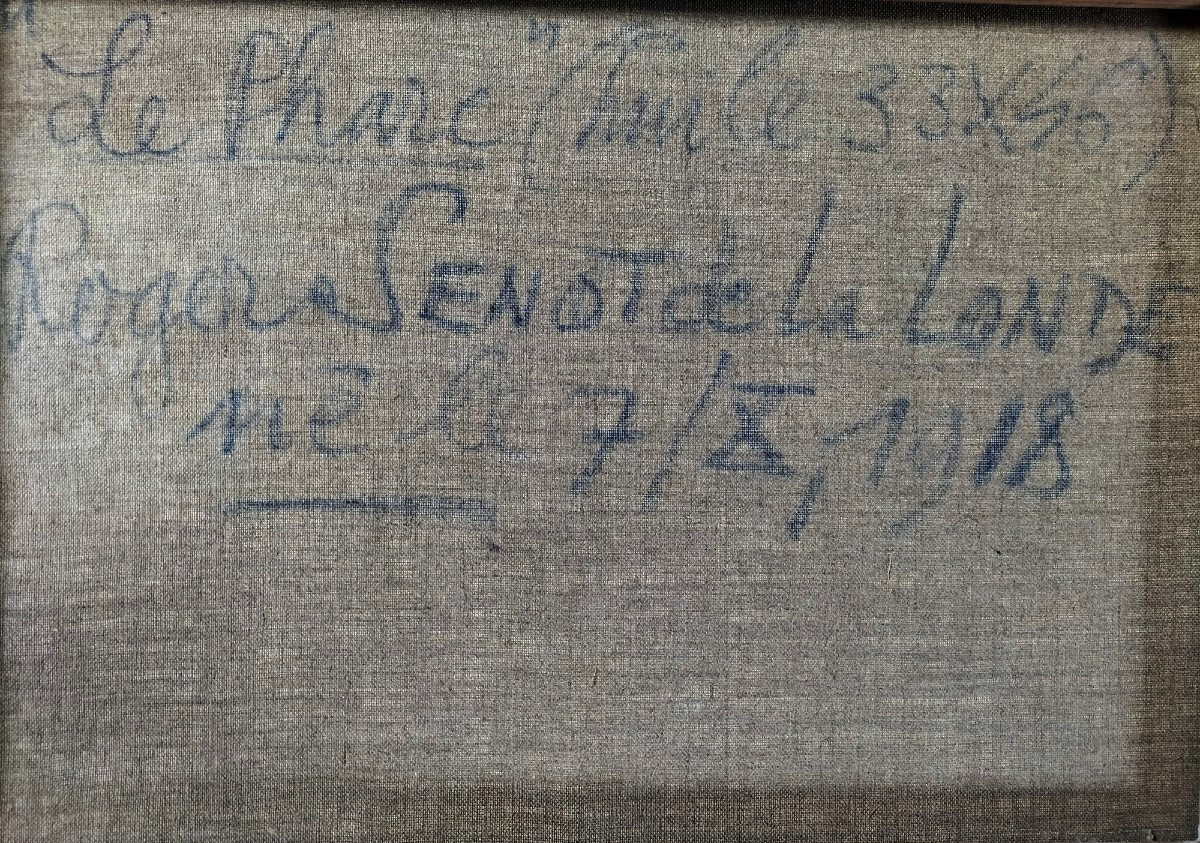 "Le Phare" (Toile 33X46)
Roger SENOT de la LONDE
né le 7/X, 1918